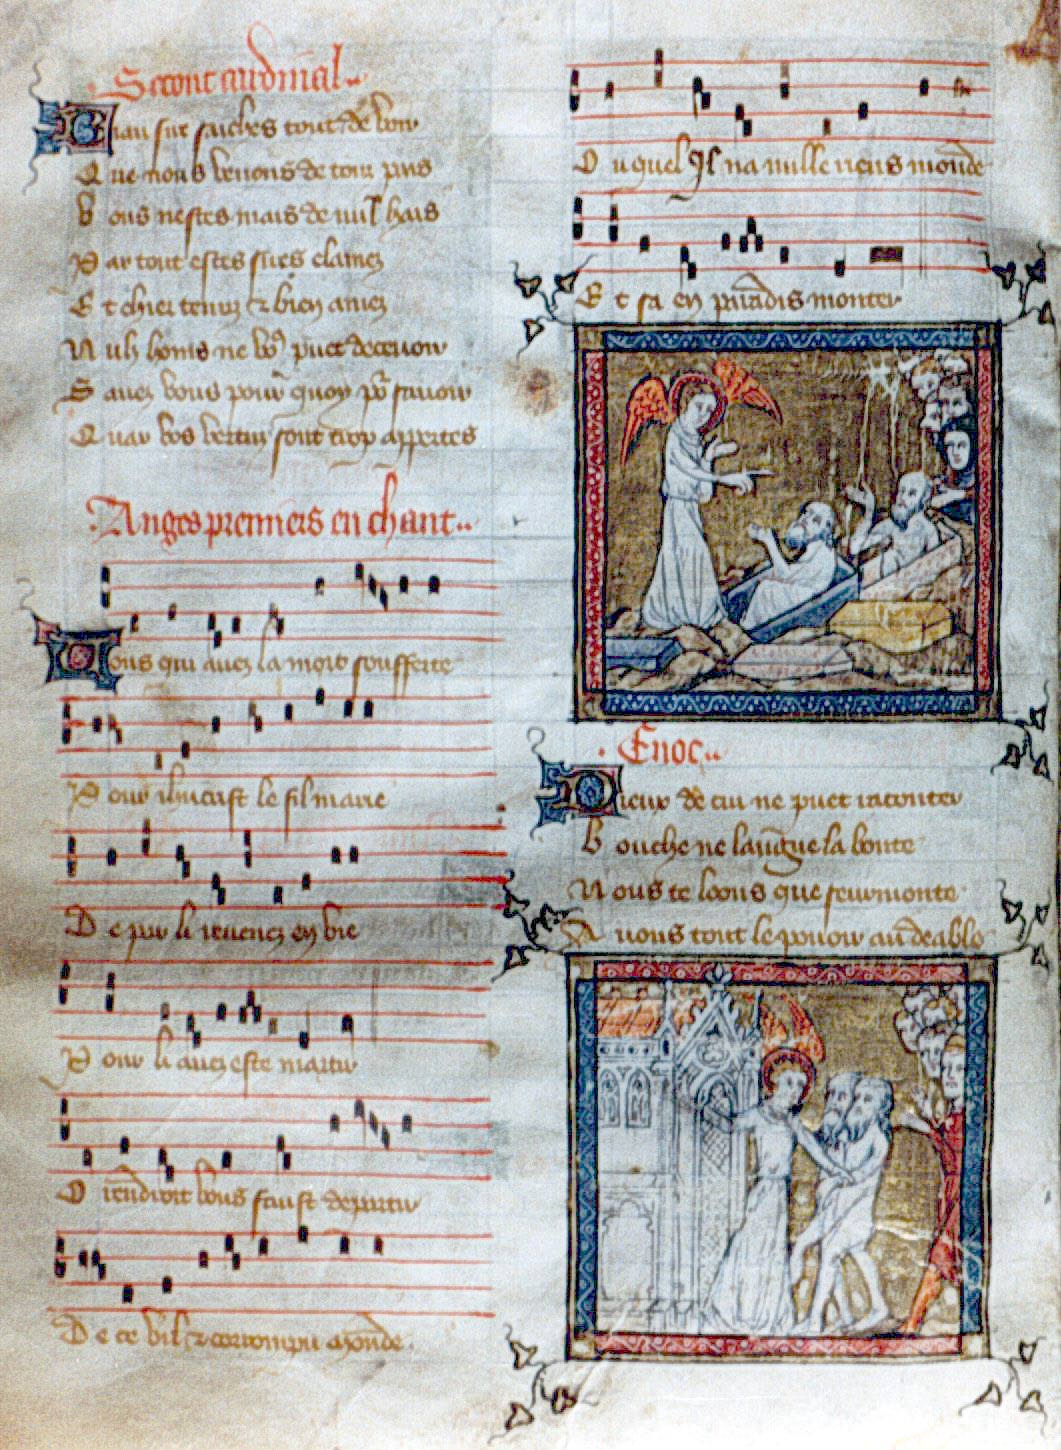 Secont cardinal
Biau sire saiches tout de voir
Que nous venons de tout pais
Vous nestes mais de nul hais
Par tout estes sires clamez
Et chier tenuz & bien amez
Nulz homs ne vous puet decevoir
Savez vous pour quoy por savoir
Quar vos vertuz sont trop appertes
Anges premiers en chant
Vous qui avez la mort soufferte
Pour ihucrist le fil marie
De par li revenez en vie
Pour li avez este martir
Orendroit vous faust departir
De ce vil & corrompu monde
Ouquel Il na nulle riens monde
Et sa en paradis monter
Enoc
Dieux de cui ne puet raconter
Bouche ne langue la bonte
Nous te loons que seurmonte
Avons tout le pouoir au deable